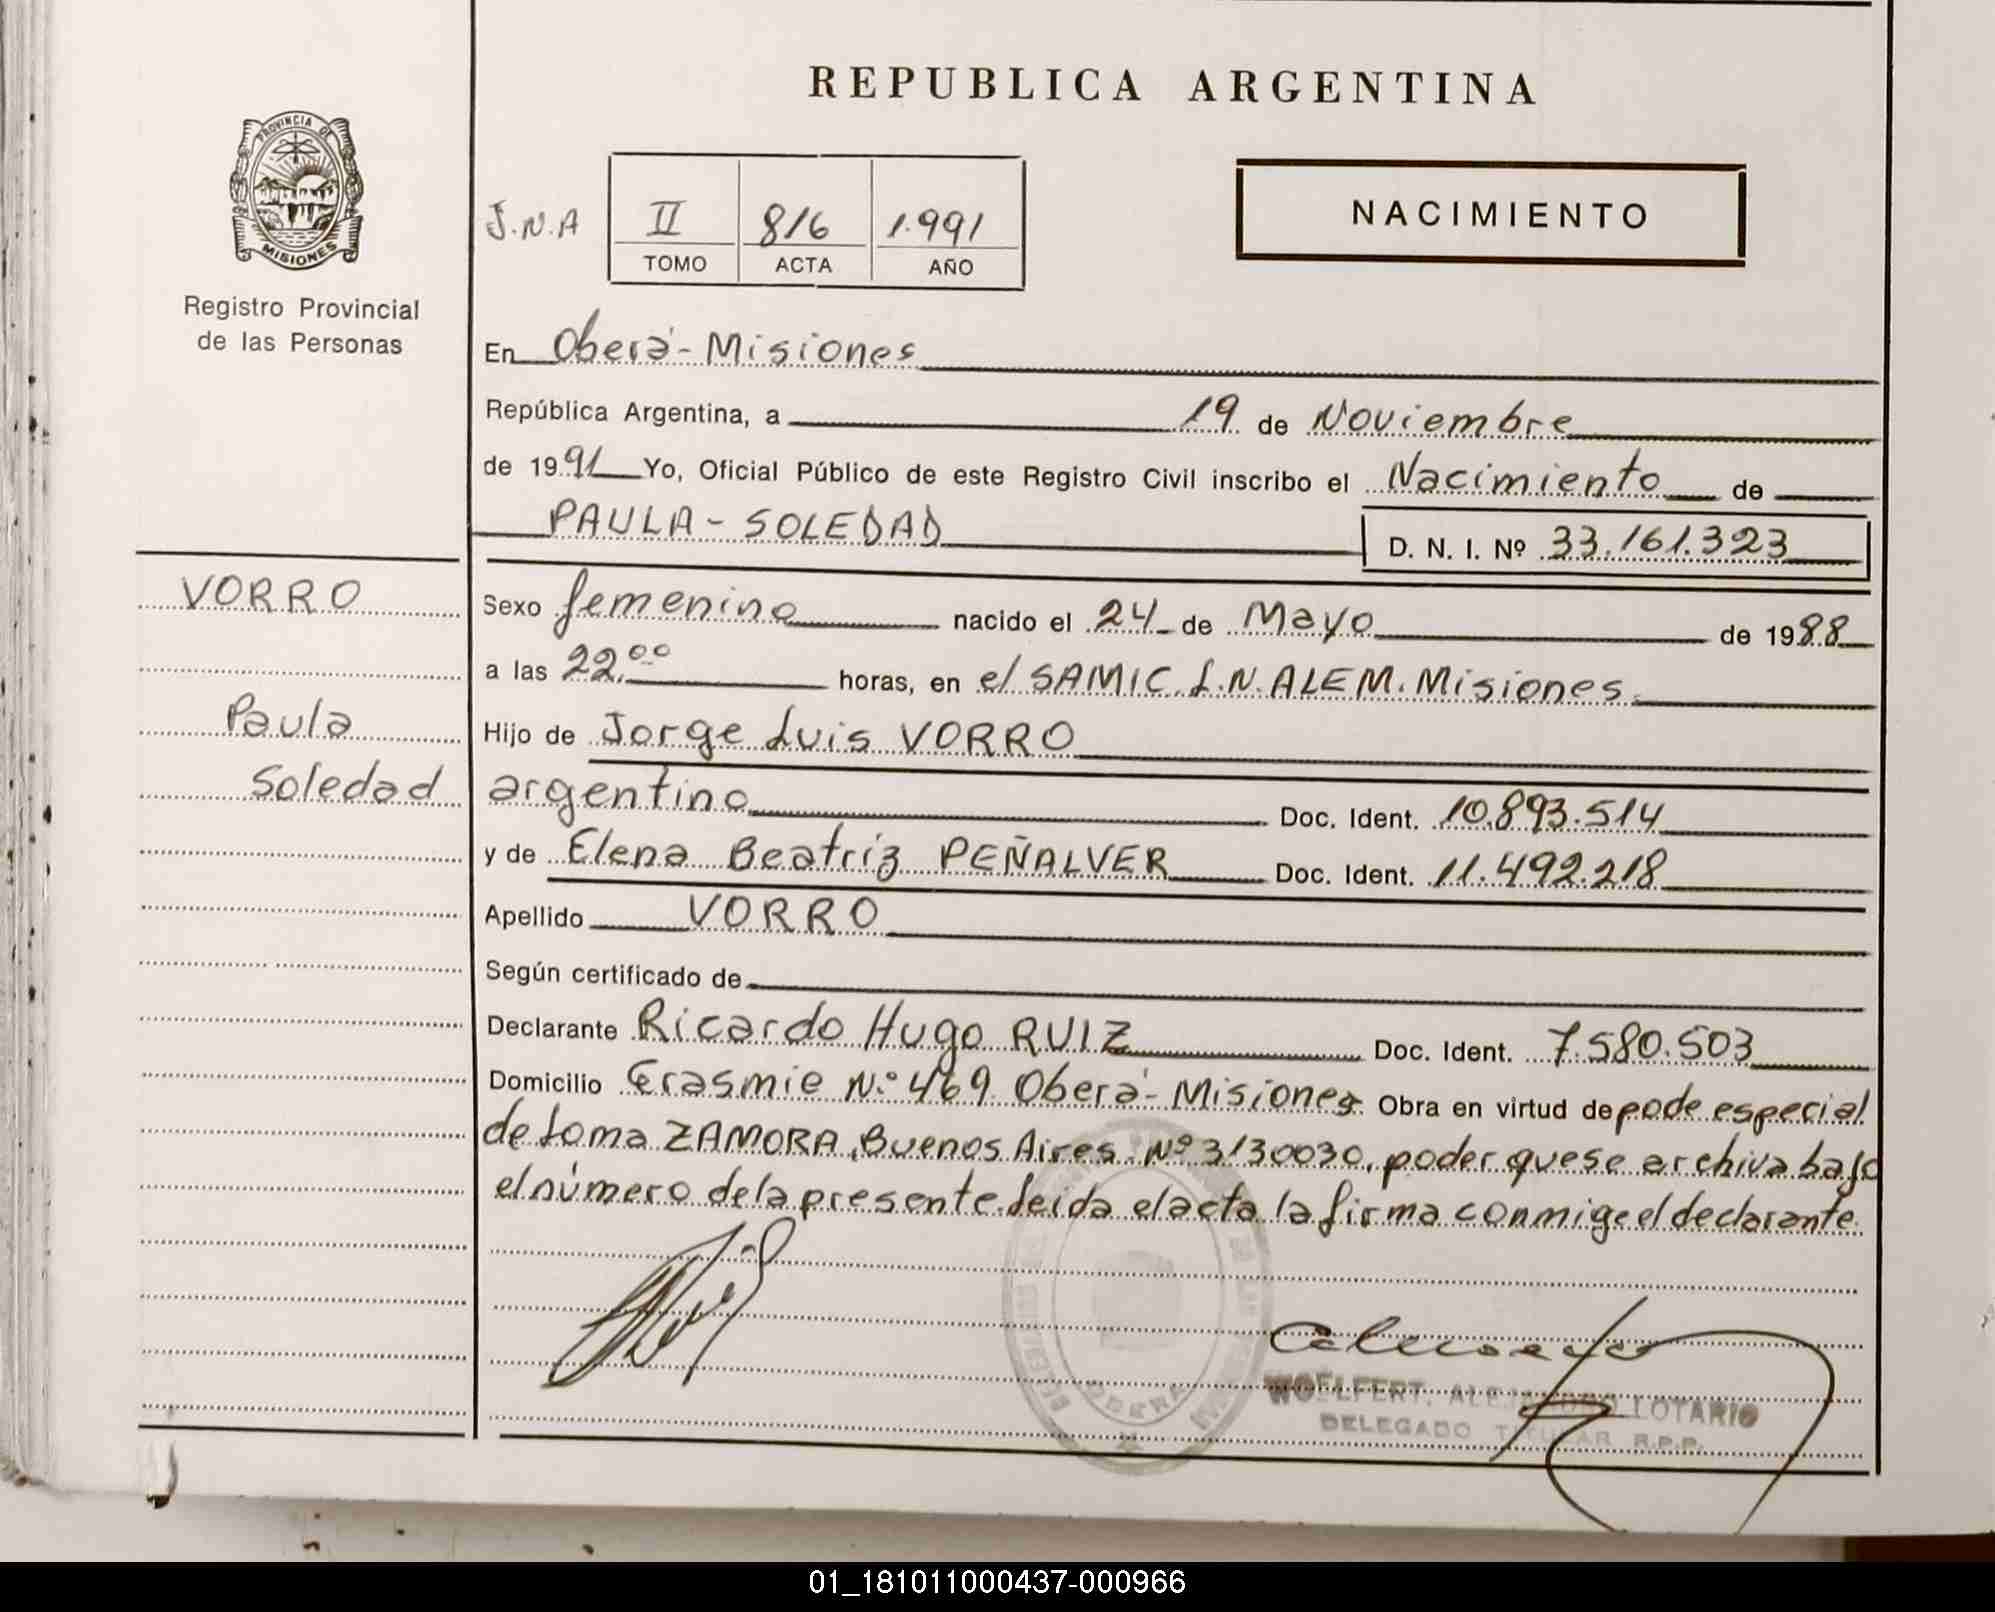 REPUBLICA ARGENTINA
PROVINCIA DE
MISIONES
Registro Provincial
de las Personas
J.N.A II 816 1.991
TOMO ACTA AÑO
NACIMIENTO
En Oberá - Misiones
República Argentina, a 19 de Noviembre
de 1991 Yo, Oficial Público de este Registro Civil inscribo el Nacimiento de
PAULA - SOLEDAD D. N. I. Nº 33.161.323
VORRO
Paula
Soledad
Sexo femenino nacido el 24 de Mayo de 1988
a las 22.00 horas, en el SAMIC L.N.ALEM. Misiones
Hijo de Jorge Luis VORRO
argentino Doc. Ident. 10.893.514
y de Elena Beatriz PEÑALVER Doc. Ident. 11.492.218
Apellido VORRO
Según certificado de
Declarante Ricardo Hugo RUIZ Doc. Ident. 7.580.503
Domicilio Erasmie Nº 469 Oberá - Misiones Obra en virtud de pode especial
de Loma ZAMORA, Buenos Aires. Nº 3130030, poder que se archiva bajo
el número de la presente. Leida el acta la firma conmigo el declarante.
WOELFERT, ALEJANDRO LOTARIO
DELEGADO TITULAR R.P.P.
01_181011000437-000966